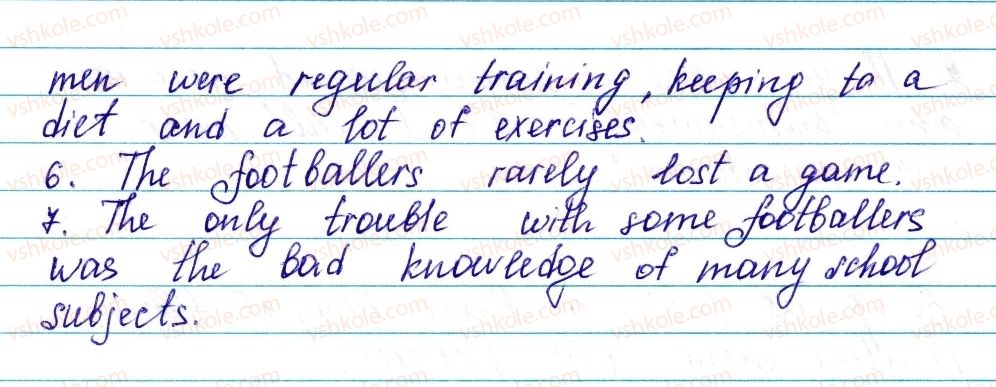 men were regular training, keeping to a
diet and a lot of exercises.
6. The footballers rarely lost a game.
7. The only trouble with some footballers
was the bad knowledge of many school
subjects.